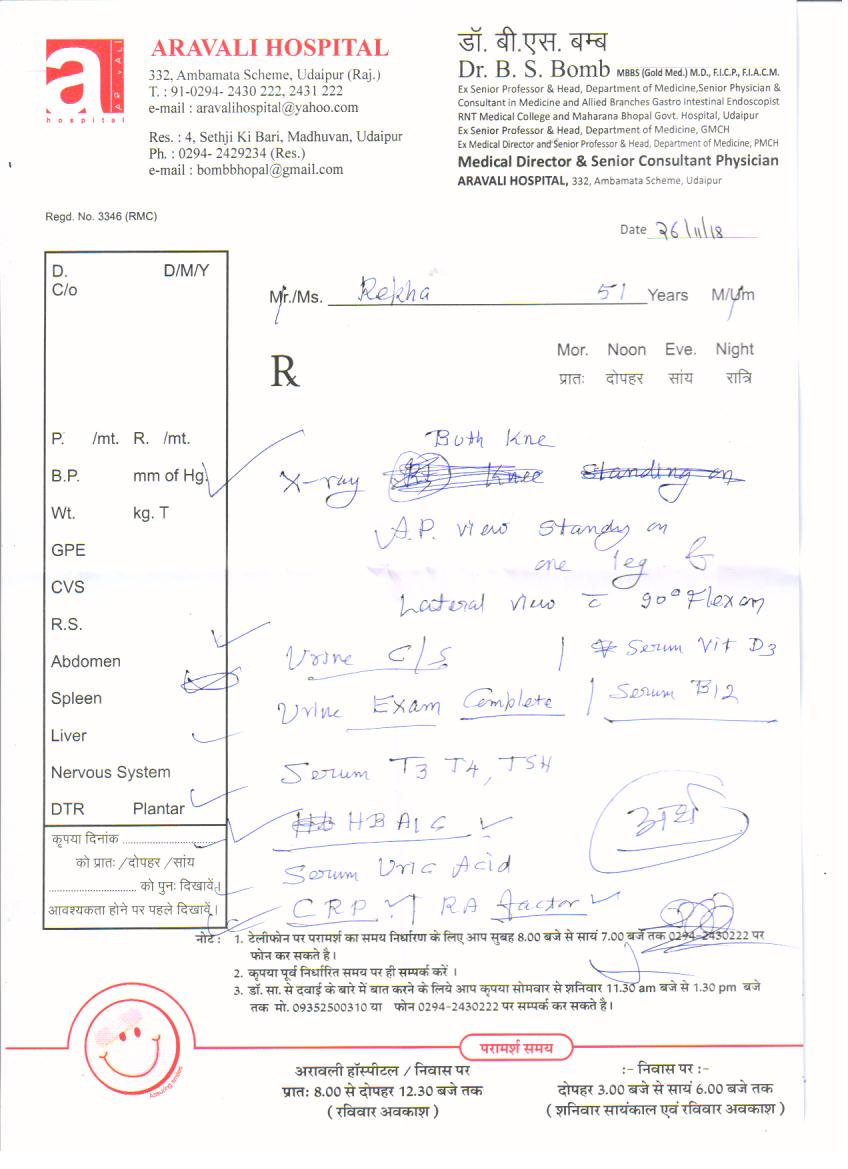 ARAVALI HOSPITAL
332, Ambamata Scheme, Udaipur (Raj.)
T. : 91-0294- 2430 222, 2431 222
e-mail : aravalihospital@yahoo.com
Res. : 4, Sethji Ki Bari, Madhuvan, Udaipur
Ph. : 0294- 2429234 (Res.)
e-mail : bombbhopal@gmail.com
a
ARAVALI
hospital
डॉ. बी.एस. बम्ब
Dr. B. S. Bomb MBBS (Gold Med.) M.D., F.I.C.P., F.I.A.C.M.
Ex Senior Professor & Head, Department of Medicine,Senior Physician &
Consultant in Medicine and Allied Branches Gastro Intestinal Endoscopist
RNT Medical College and Maharana Bhopal Govt. Hospital, Udaipur
Ex Senior Professor & Head, Department of Medicine, GMCH
Ex Medical Director and Senior Professor & Head, Department of Medicine, PMCH
Medical Director & Senior Consultant Physician
ARAVALI HOSPITAL, 332, Ambamata Scheme, Udaipur
Regd. No. 3346 (RMC)
Date 26/11/18
D. D/M/Y
C/o
Mr./Ms. Rekha 51 Years M/Um
R
Mor. Noon Eve. Night
प्रातः दोपहर सांय रात्रि
P. /mt. R. /mt.
B.P. mm of Hg.
Wt. kg. T
GPE
CVS
R.S.
Abdomen
Spleen
Liver
Nervous System
DTR Plantar
कृपया दिनांक
को प्रातः/दोपहर/सांय
को पुनः दिखावें।
आवश्यकता होने पर पहले दिखावें।
Both Kne
X-ray Knee Standing on
A.P. view Standy on
one leg &
Lateral view c 90° Flexon
Urine C/S | Serum Vit D3
Urine Exam Complete | Serum B12
Serum T3 T4, TSH
HBA1C
Serum Uric Acid
CRP RA factor
नोट : 1. टेलीफोन पर परामर्श का समय निर्धारण के लिए आप सुबह 8.00 बजे से सायं 7.00 बजे तक 0294-2430222 पर
फोन कर सकते है।
2. कृपया पूर्व निर्धारित समय पर ही सम्पर्क करें ।
3. डॉ. सा. से दवाई के बारे में बात करने के लिये आप कृपया सोमवार से शनिवार 11.30 am बजे से 1.30 pm बजे
तक मो. 09352500310 या फोन 0294-2430222 पर सम्पर्क कर सकते है।
Assuring smiles
परामर्श समय
अरावली हॉस्पीटल / निवास पर
प्रातः 8.00 से दोपहर 12.30 बजे तक
( रविवार अवकाश )
:- निवास पर :-
दोपहर 3.00 बजे से सायं 6.00 बजे तक
( शनिवार सायंकाल एवं रविवार अवकाश )